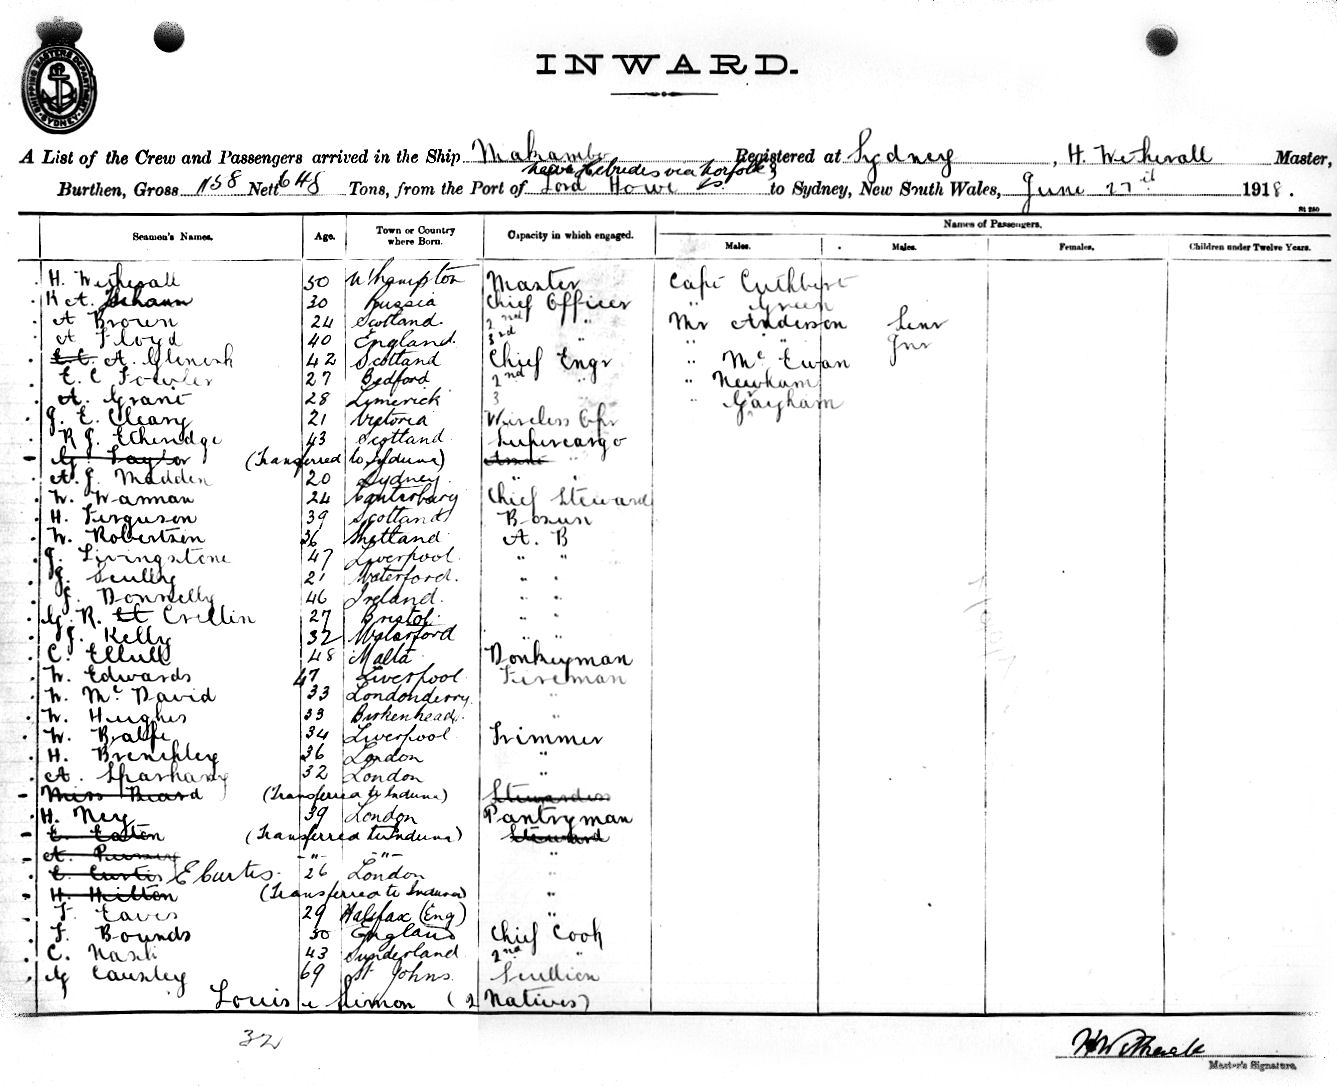 SHIPPING MASTERS DEPARTMENT SYDNEY
INWARD.
A List of the Crew and Passengers arrived in the Ship Makambo Registered at Sydney, H. Wetherall Master,
New Hebrides via Norfolk &
Burthen, Gross 1158 Nett 648 Tons, from the Port of Lord Howe Is to Sydney, New South Wales, June 27th 1918.
Names of Passengers.
Seamen's Names. Age. Town or Country where Born. Capacity in which engaged. Males. Males. Females. Children under Twelve Years.
H. Wetherall 50 W'hampton Master Capt Cuthbert
K A. 30 Russia Chief Officer " Green
A Brown 24 Scotland 2nd " Mr Anderson Senr
A Floyd 40 England 3rd " " " Jnr
A. 42 Scotland Chief Engr " Mc Ewan
E. C Fowler 27 Bedford 2nd " " Newham
A. Grant 28 Limerick 3 " Gayham
J. E. Cleary 21 Victoria Wireless Opr
R J. Etheridge 43 Scotland Supercargo
G. Taylor (Transferred to Induna) "
A. J. Madden 20 Sydney " "
W. Wannan 24 Canterbury Chief Steward
H. Ferguson 39 Scotland Bosun
W. Robertson 36 Shetland A. B
J. Livingstone 47 Liverpool " "
J. Scully 21 Waterford " "
J. Donnelly 46 Ireland " "
G. R. Crellin 27 Bristol " "
J. Kelly 32 Waterford " "
C. Ellull 48 Malta Donkeyman
W. Edwards 47 Liverpool Fireman
W. Mc David 33 Londonderry "
W. Hughes 33 Birkenhead "
W. Balfe 34 Liverpool Trimmer
H. Brenchley 36 London "
A. Sparhany 32 London "
Miss Beard (Transferred to Induna) Stewardess
H. Ney 39 London Pantryman
E. Easten (Transferred to Induna) Steward
A. -"- -"- "
E. Curtis E Curtis. 26 London "
H. Hilton (Transferred to Induna) "
F. Eaves 29 Halifax (Eng) "
F. Bounds 30 England Chief Cook
C. Nash 43 Sunderland 2nd "
G Causley 69 St Johns Scullion
Louis & Simon (2 Natives)
32
H Wetherall
Master's Signature.